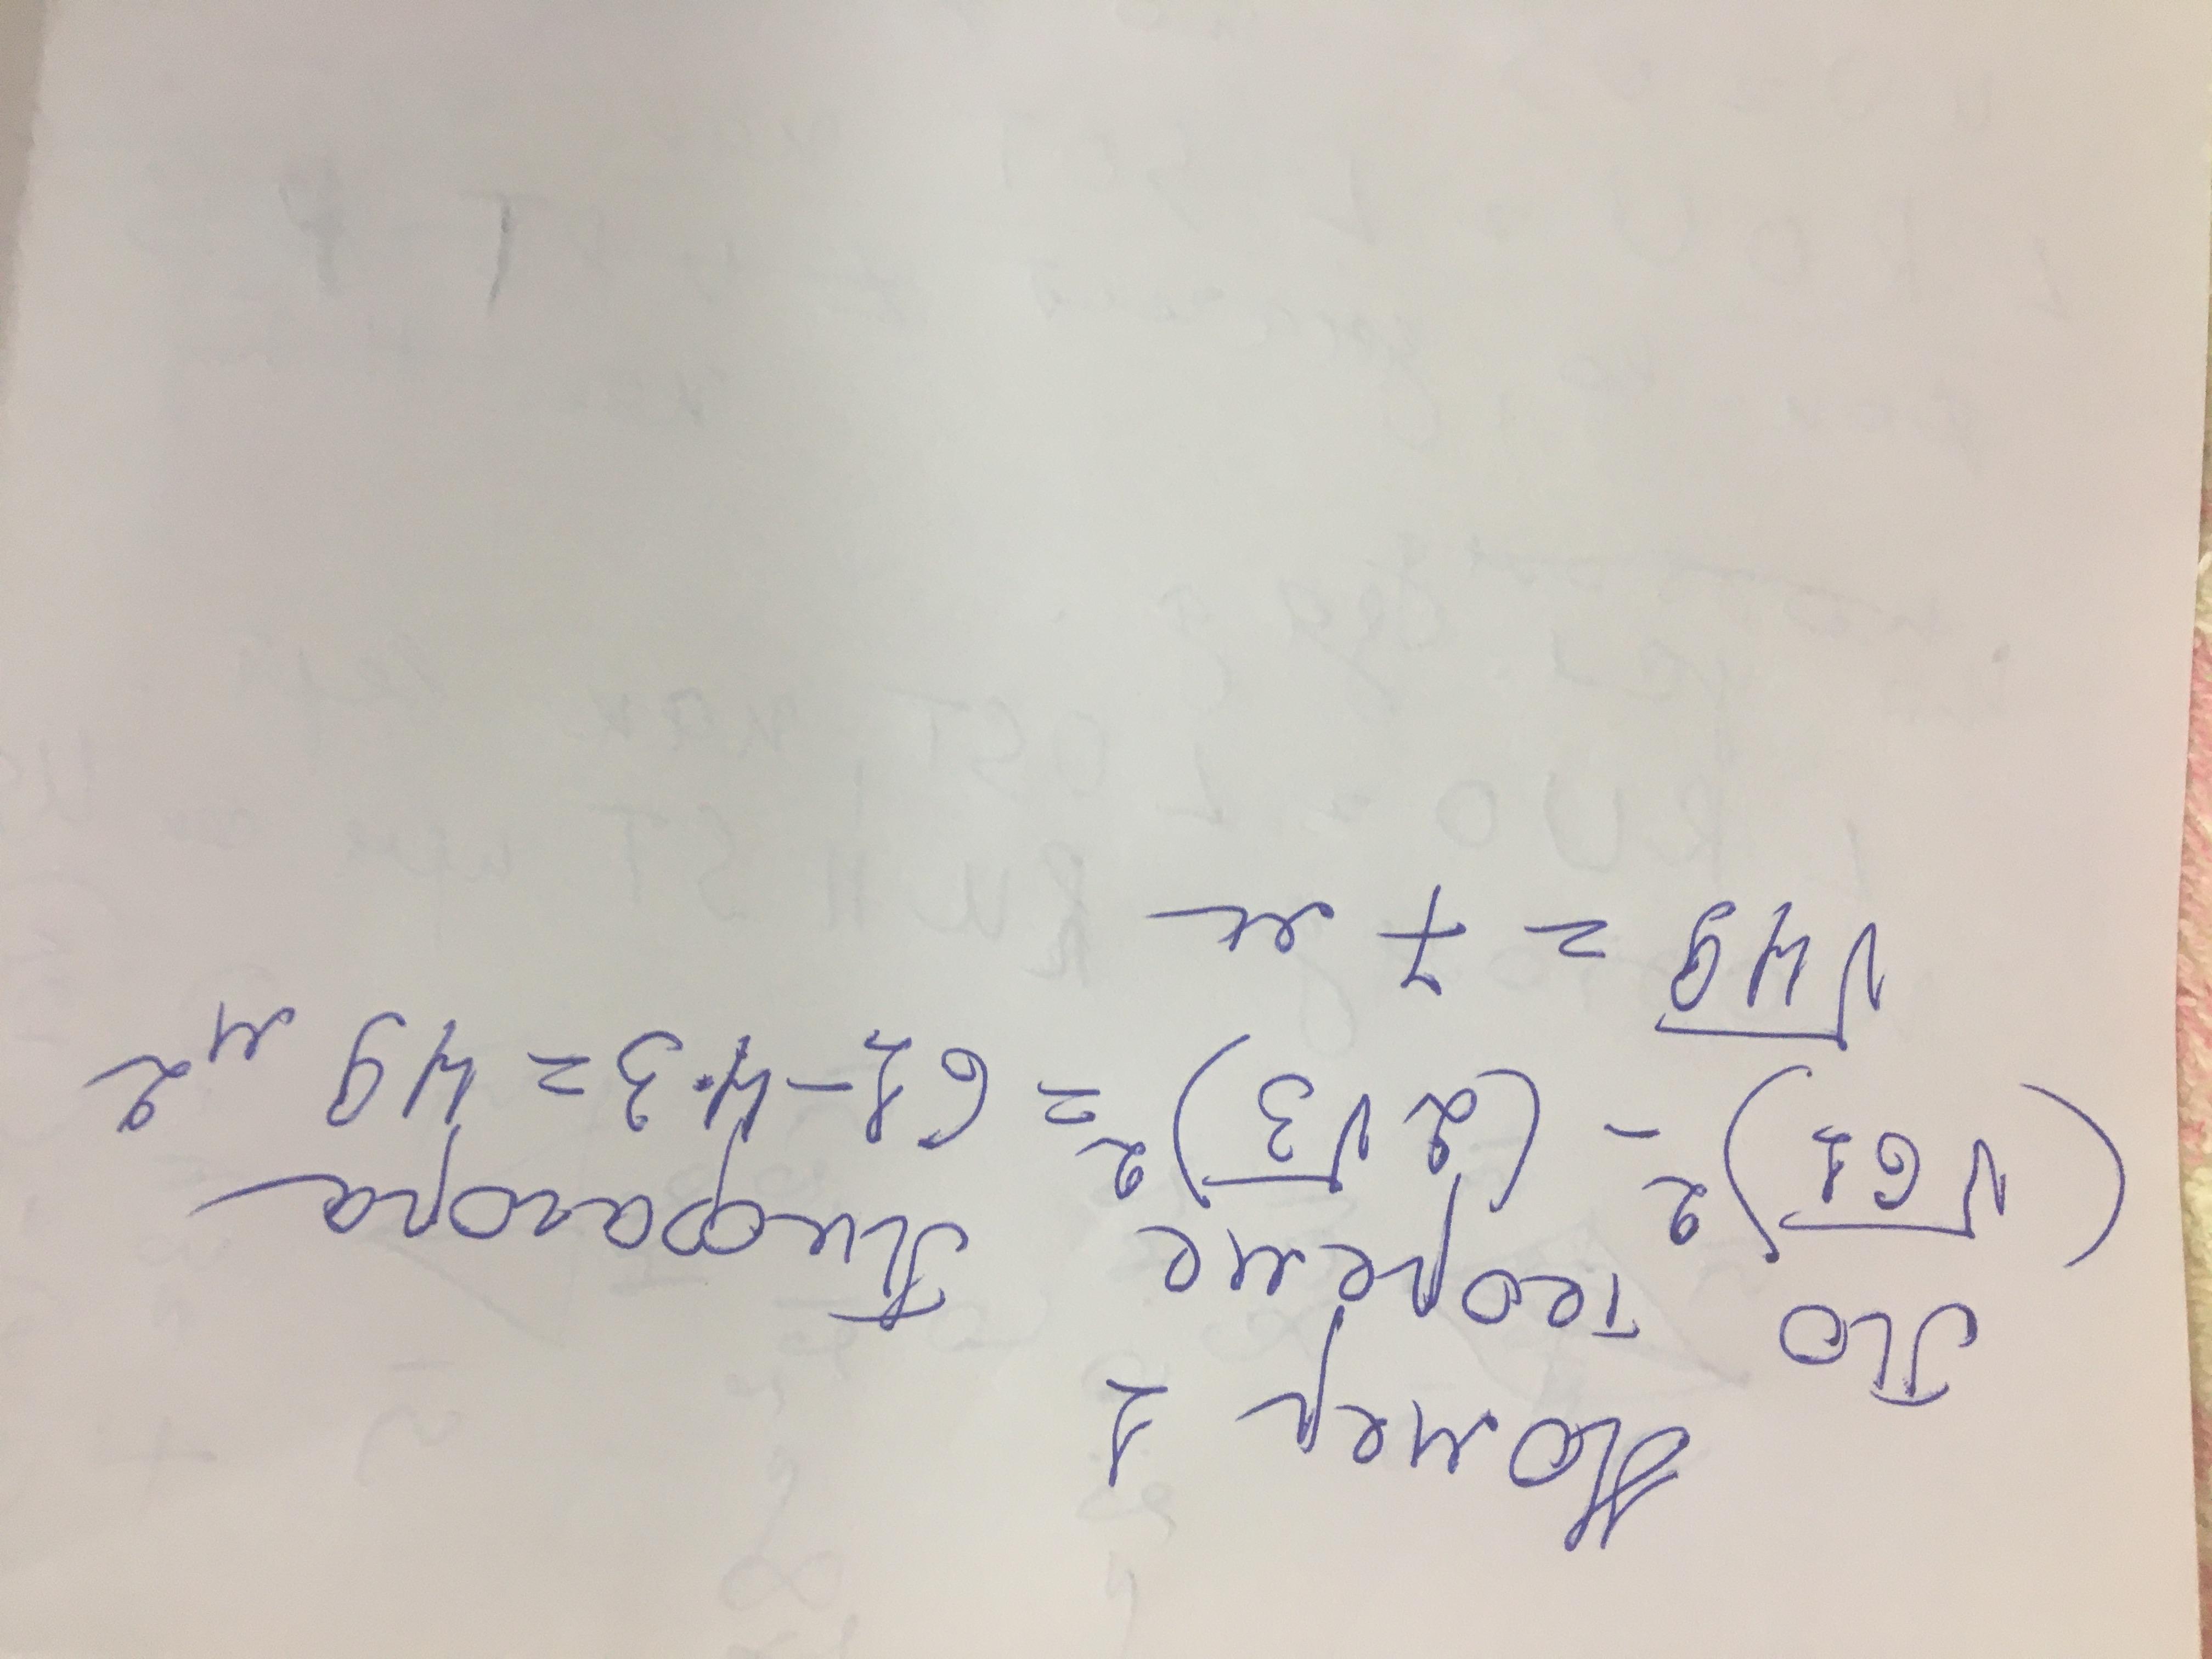 Номер 1
По теореме Пифагора
(√61)² - (2√3)² = 61 - 4·3 = 49 м²
√49 = 7 м